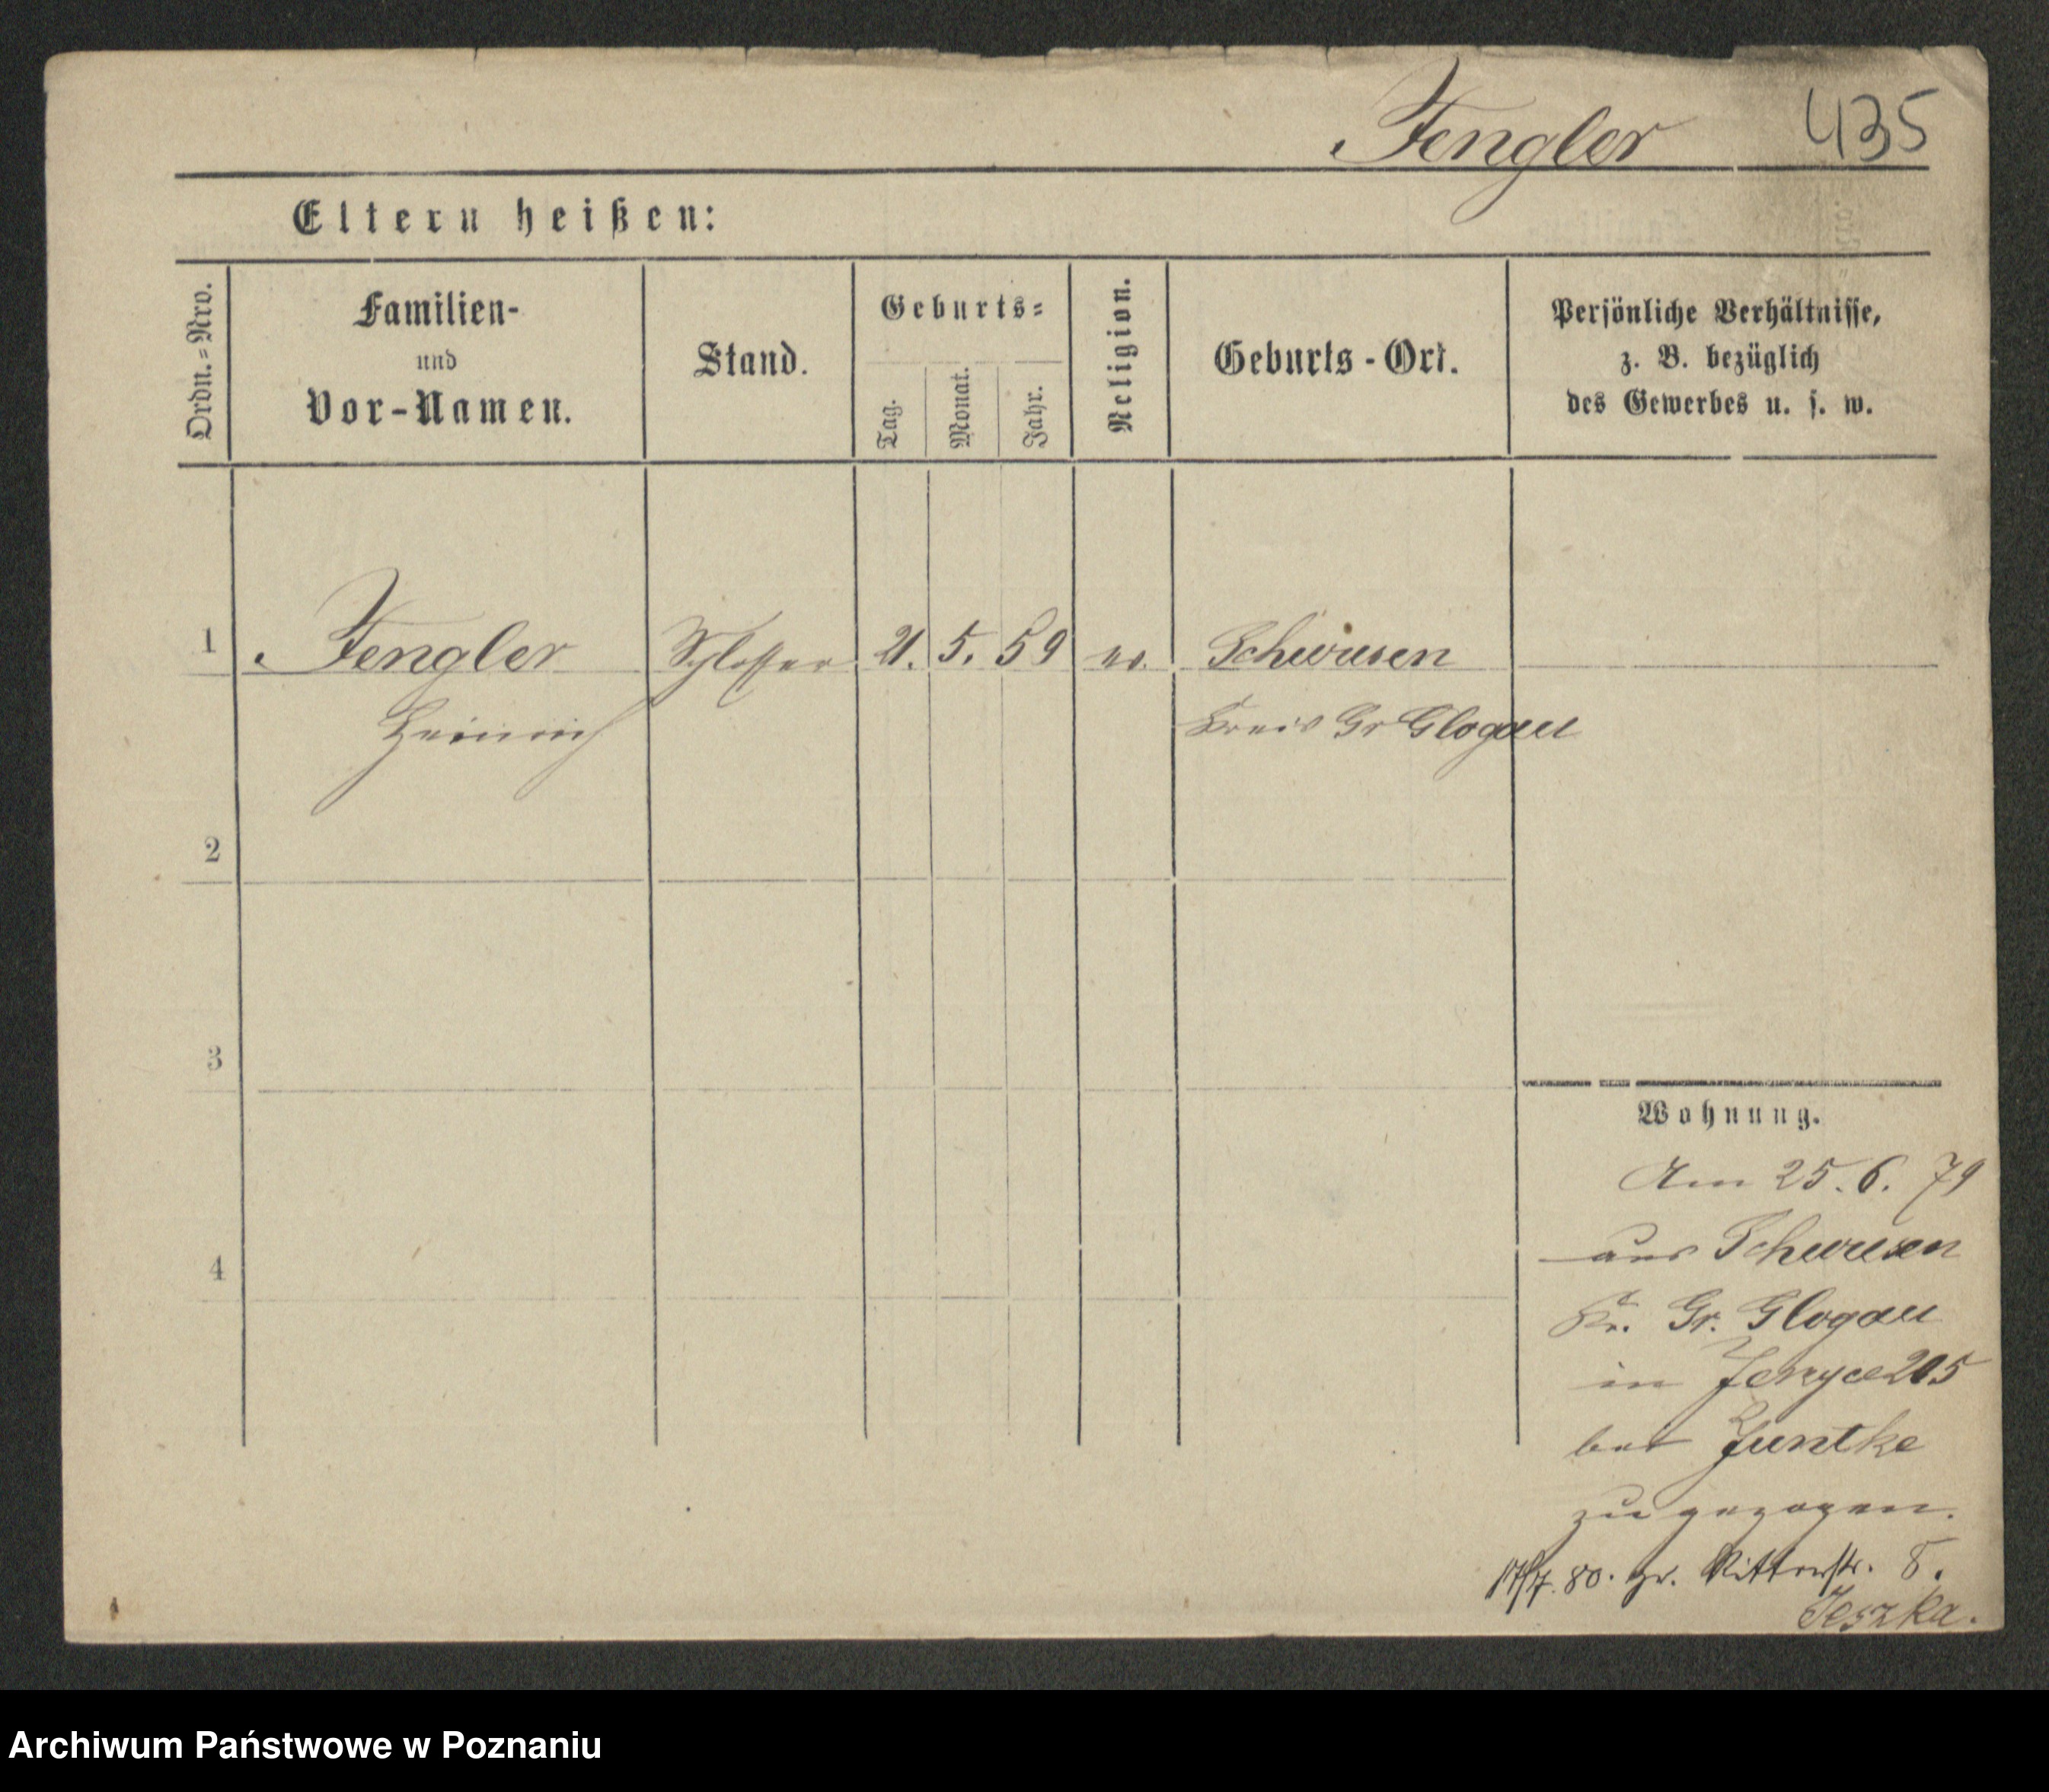 Fengler 435
Eltern heißen:
Ordn.=Nro.
Familien-
und
Vor-Namen.
Stand.
Geburts=
Tag.
Monat.
Jahr.
Religion.
Geburts-Ort.
Persönliche Verhältnisse,
z. B. bezüglich
des Gewerbes u. s. w.
1 Fengler Schlosser 21. 5. 59 ev. Schwusen
Heinrich Kreis Gr Glogau
2
3
4
Wohnung.
Am 25. 6. 79
aus Schwusen
Kr. Gr. Glogau
in Jerzyce 205
bei Juntke
zugezogen.
17/7. 80. gr. Ritterstr. 8.
Jeszka.
Archiwum Państwowe w Poznaniu